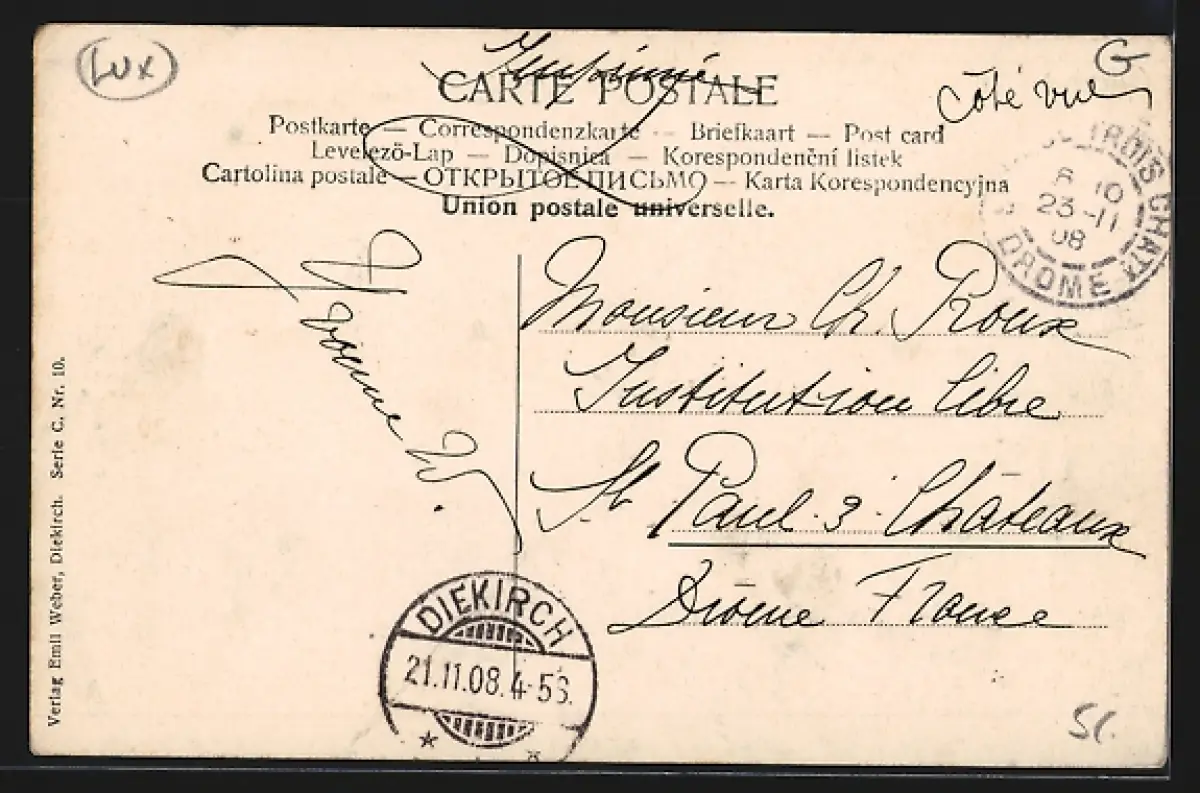 Lux
Imprimé
G
côté vue
CARTE POSTALE
Postkarte — Correspondenzkarte — Briefkaart — Post card
Levelező-Lap — Dopisnica — Korespondenční listek
Cartolina postale — ОТКРЫТОЕ ПИСЬМО — Karta Korespondencyjna
Union postale universelle.
TROIS CHATX
8 10
23 -11
08
DROME
Monsieur Ch. Roux
Institution libre
St Paul 3 Châteaux
Drôme France
DIEKIRCH
21.11.08. 4-5S.
Verlag Emil Weber, Diekirch. Serie C, Nr. 10.